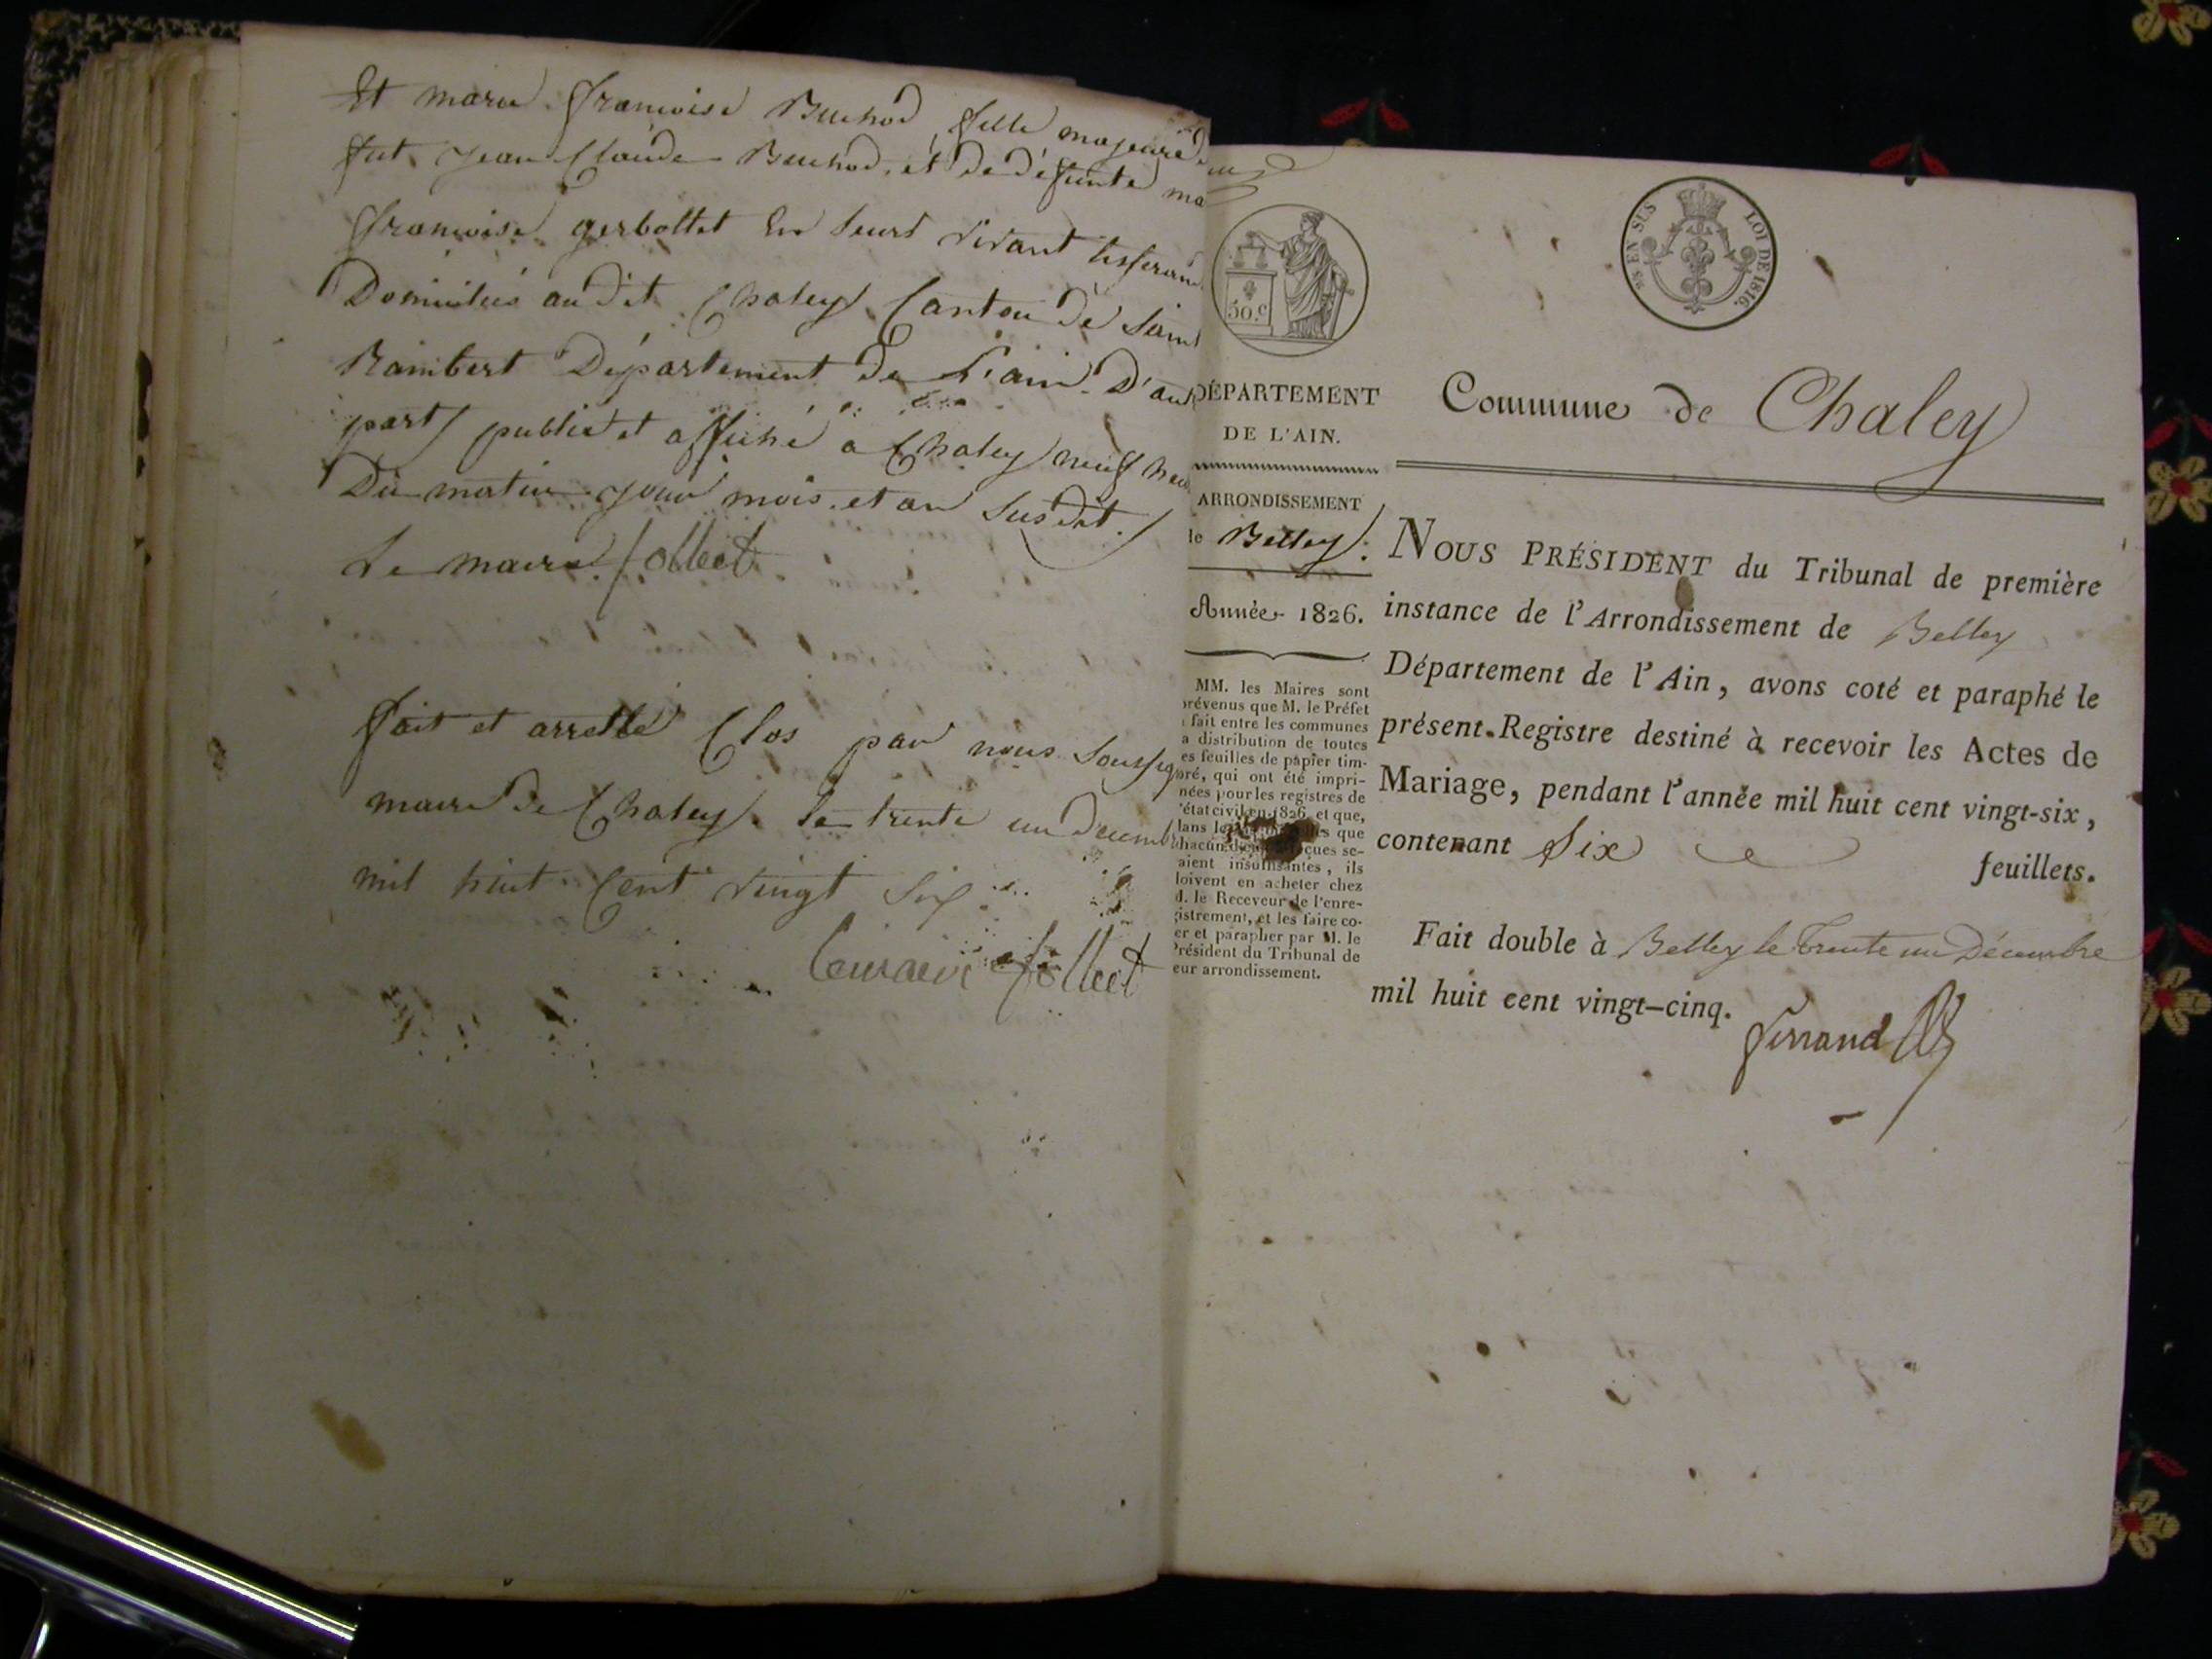 Et marie françoise Buchod fille majeure de
fut jean Claude Buchod, et de défunte ma
françoise gerbottet En leurs vivant tisseran
Domiciliés au dit Chaley Canton de Saint
Rambert Département de L'ain D'aut
part publié et affiché a Chaley neuf heu
Du matin jour mois et an Susdit.
Le maire Collect
fait et arretté Clos par nous Soussig
maire de Chaley le trente un decemb
mil huit Cent vingt Six
Le maire Collect
50.c
EN SUS LOI DE 1816.
DÉPARTEMENT
DE L'AIN.
ARRONDISSEMENT
de Belley.
Année 1826.
MM. les Maires sont
prévenus que M. le Préfet
fait entre les communes
a distribution de toutes
es feuilles de papier tim-
bré, qui ont été impri-
mées pour les registres de
l'état civil en 1826, et que,
dans le que
chacun reçues se-
aient insuffisantes, ils
doivent en acheter chez
M. le Receveur de l'enre-
gistrement, et les faire co-
er et parapher par M. le
Président du Tribunal de
eur arrondissement.
Commune de Chaley
NOUS PRÉSIDENT du Tribunal de première
instance de l'Arrondissement de Belley
Département de l'Ain, avons coté et paraphé le
présent Registre destiné à recevoir les Actes de
Mariage, pendant l'année mil huit cent vingt-six,
contenant Six feuillets.
Fait double à Belley le trente un Décembre
mil huit cent vingt-cinq.
Ferrand